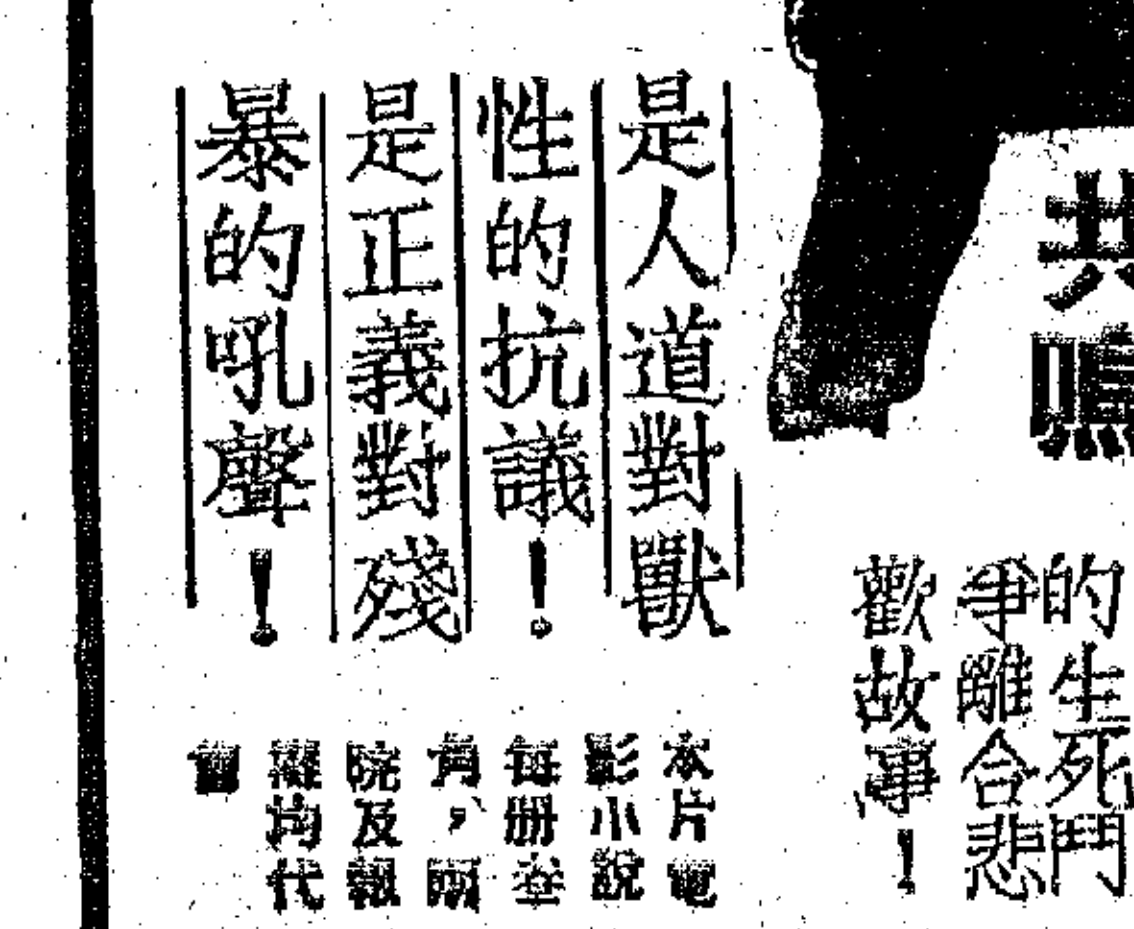 共鳴
的生死鬥
爭離合悲
歡故事！
是人道對獸
性的抗議！
是正義對殘
暴的吼聲！
本片電
影小說
每册壹
角，兩
院及報
攤均代
售